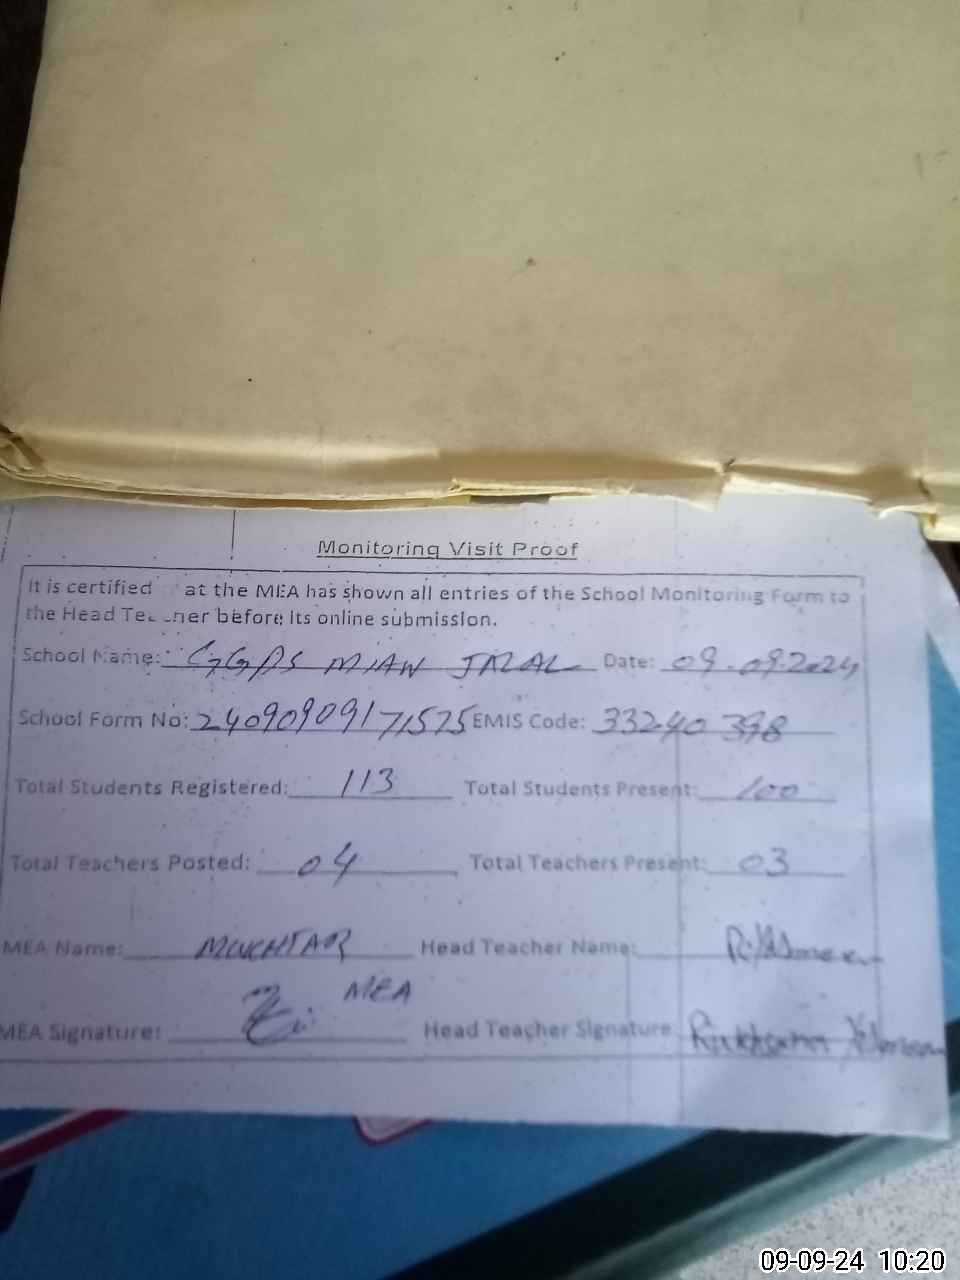 Monitoring Visit Proof
It is certified at the MEA has shown all entries of the School Monitoring Form to
the Head Teacher before its online submission.
School Name: GGPS MIAN JALAL Date: 09.09.2024
School Form No: 24090909171575 EMIS Code: 33240398
Total Students Registered: 113 Total Students Present: 100
Total Teachers Posted: 04 Total Teachers Present: 03
MEA Name: MUKHTAR Head Teacher Name:
MEA
MEA Signature: Head Teacher Signature: Rukhsana
09-09-24 10:20